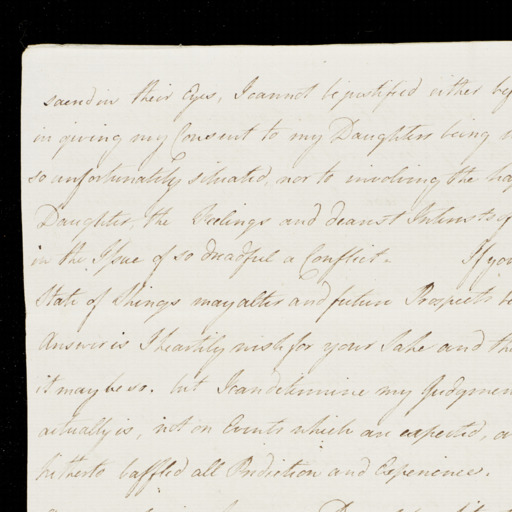 sacred in their Eyes, I cannot be justified either by
in giving my Consent to my Daughters being
so unfortunately situated, nor to involving the
Daughter, the Feelings and dearest Interests of
in the Issue of so dreadful a Conflict. If you
State of Things may alter and future Prospects
Answer is I heartily wish for your Sake and
it may be so. but I can determine my Judgment
actually is, not on Events which are expected,
hitherto baffled all Prediction and Experience.